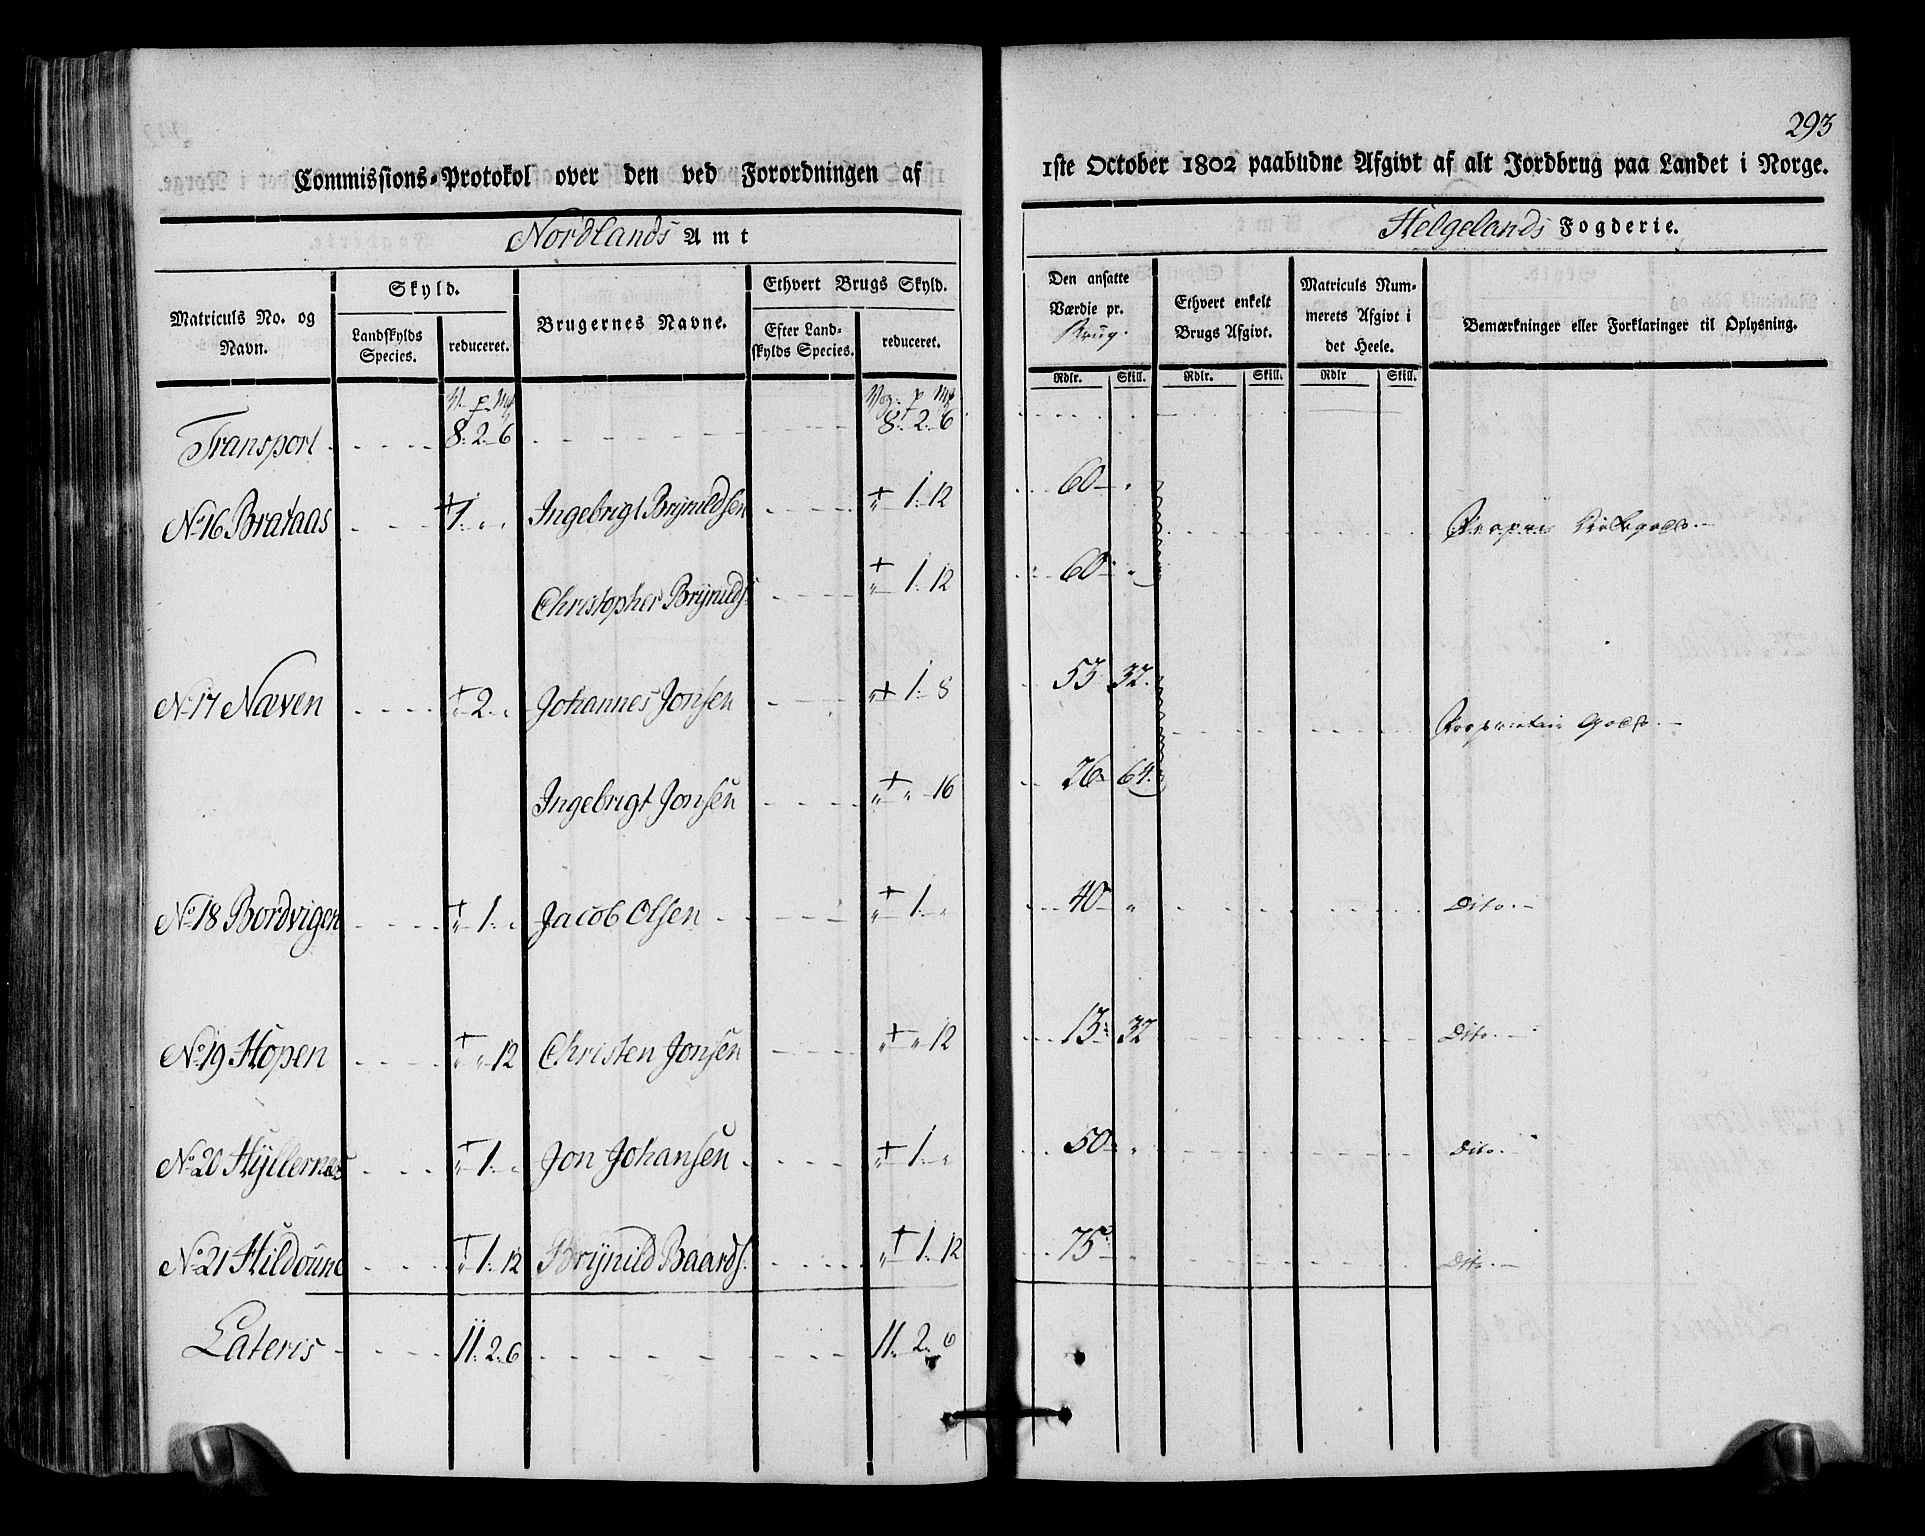 293
Commissions-Protokol over den ved Forordningen af 1ste October 1802 paabudne Afgivt af alt Jordbrug paa Landet i Norge.
Nordlands Amt Helgelands Fogderie.
Matriculs No. og Navn. Skyld. Landskylds Species. reduceret. Brugernes Navne. Ethvert Brugs Skyld. Efter Landskylds Species. reduceret. Den ansatte Værdie pr. Brug. Ethvert enkelt Brugs Afgivt. Matriculs Nummerets Afgivt i det Heele. Bemærkninger eller Forklaringer til Oplysning.
Rdlr. Skill. Rdlr. Skill. Rdlr Skill.
Transport 8. 2. 6 8. 2. 6
No 16 Brataas 1. „ Ingebrigt Brÿnildsen „ 1. 12 60 „
Christopher Brÿnilds. „ 1. 12 60 „
No 17 Næven „ 2. „ Johannes Jonsen „ 1. 8 53 32. Proprietair Gods.
Ingebrigt Jonsen „ „ 16 26 64.
No 18 Bordvigen „ 1. „ Jacob Olsen „ 1. „ 40 „ Dito.
No 19 Hopen „ „ 12 Christen Jonsen „ „ 12 13 32 Dito.
No 20 Hÿllernæs „ 1. „ Jon Johansen „ 1. „ 50 „ Dito.
No 21 Hildoune „ 1. 12 Brÿnild Baards. „ 1. 12 75 „ Dito.
Lateris 11. 2. 6 11. 2. 6